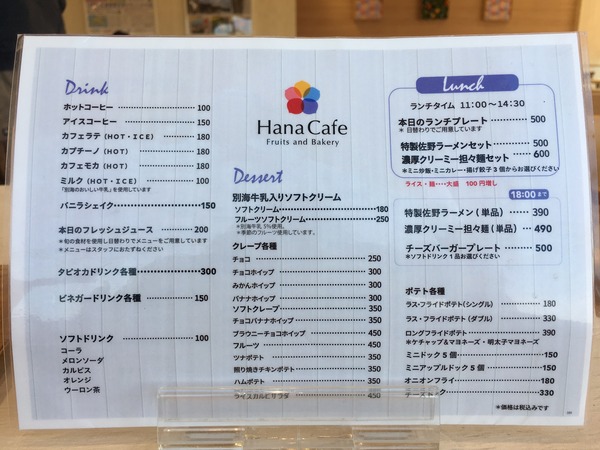 Drink
ホットコーヒー 100
アイスコーヒー 150
カフェラテ (HOT・ICE) 180
カプチーノ (HOT) 180
カフェモカ (HOT) 180
ミルク (HOT・ICE) 100
「別海のおいしい牛乳」を使用しています
バニラシェイク 150
本日のフレッシュジュース 200
＊旬の食材を使用し日替わりでメニューをご用意しています
＊メニューはスタッフにおたずねください
タピオカドリンク各種 300
ビネガードリンク各種 150
ソフトドリンク 100
コーラ
メロンソーダ
カルピス
オレンジ
ウーロン茶
Hana Cafe
Fruits and Bakery
Dessert
別海牛乳入りソフトクリーム
ソフトクリーム 180
フルーツソフトクリーム 250
＊別海牛乳 5%使用。
＊季節のフルーツ使用しています。
クレープ各種
チョコ 250
チョコホイップ 300
みかんホイップ 300
バナナホイップ 300
ソフトクレープ 350
チョコバナナホイップ 350
ブラウニーチョコホイップ 450
フルーツ 450
ツナポテト 350
照り焼きチキンポテト 350
ハムポテト 350
ライスカルビサラダ 450
Lunch
ランチタイム 11:00～14:30
本日のランチプレート 500
＊ 日替わりでご用意しています
特製佐野ラーメンセット 500
濃厚クリーミー担々麺セット 600
＊ミニ炒飯・ミニカレー・揚げ餃子３個からお選びください
ライス・麺・・・大盛 100円増し
18:00まで
特製佐野ラーメン (単品) 390
濃厚クリーミー担々麺 (単品) 490
チーズバーガープレート 500
＊ソフトドリンク１品お選びください
ポテト各種
ラス・フライドポテト (シングル) 180
ラス・フライドポテト (ダブル) 330
ロングフライドポテト 390
＊ケチャップ＆マヨネーズ・明太子マヨネーズ
ミニドック５個 150
ミニアップルドック５個 150
オニオンフライ 180
330
＊価格は税込みです